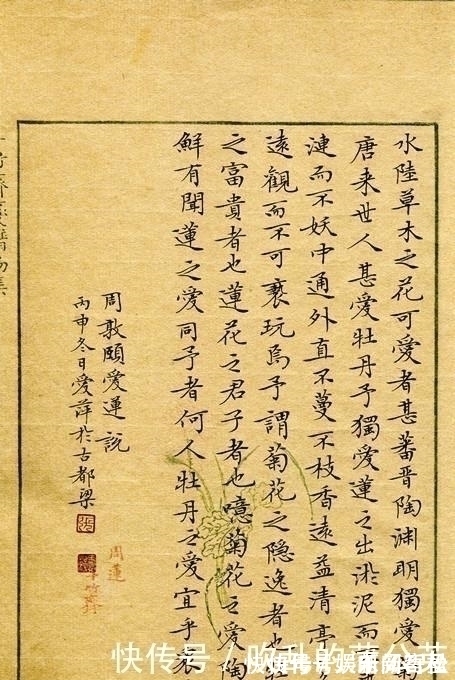 水陸草木之花可愛者甚蕃晋陶渊明獨愛菊
唐来世人甚愛牡丹予獨愛蓮之出淤泥而
漣而不妖中通外直不蔓不枝香遠益清亭
遠觀而不可褻玩焉予謂菊花之隐逸者也
之富貴者也蓮花之君子者也噫菊花之愛陶
鮮有聞蓮之愛同予者何人牡丹之愛宜乎衆
周敦頤愛蓮説
丙申冬日愛萍於古都梁
快传号 / 吹乱的蒲公英